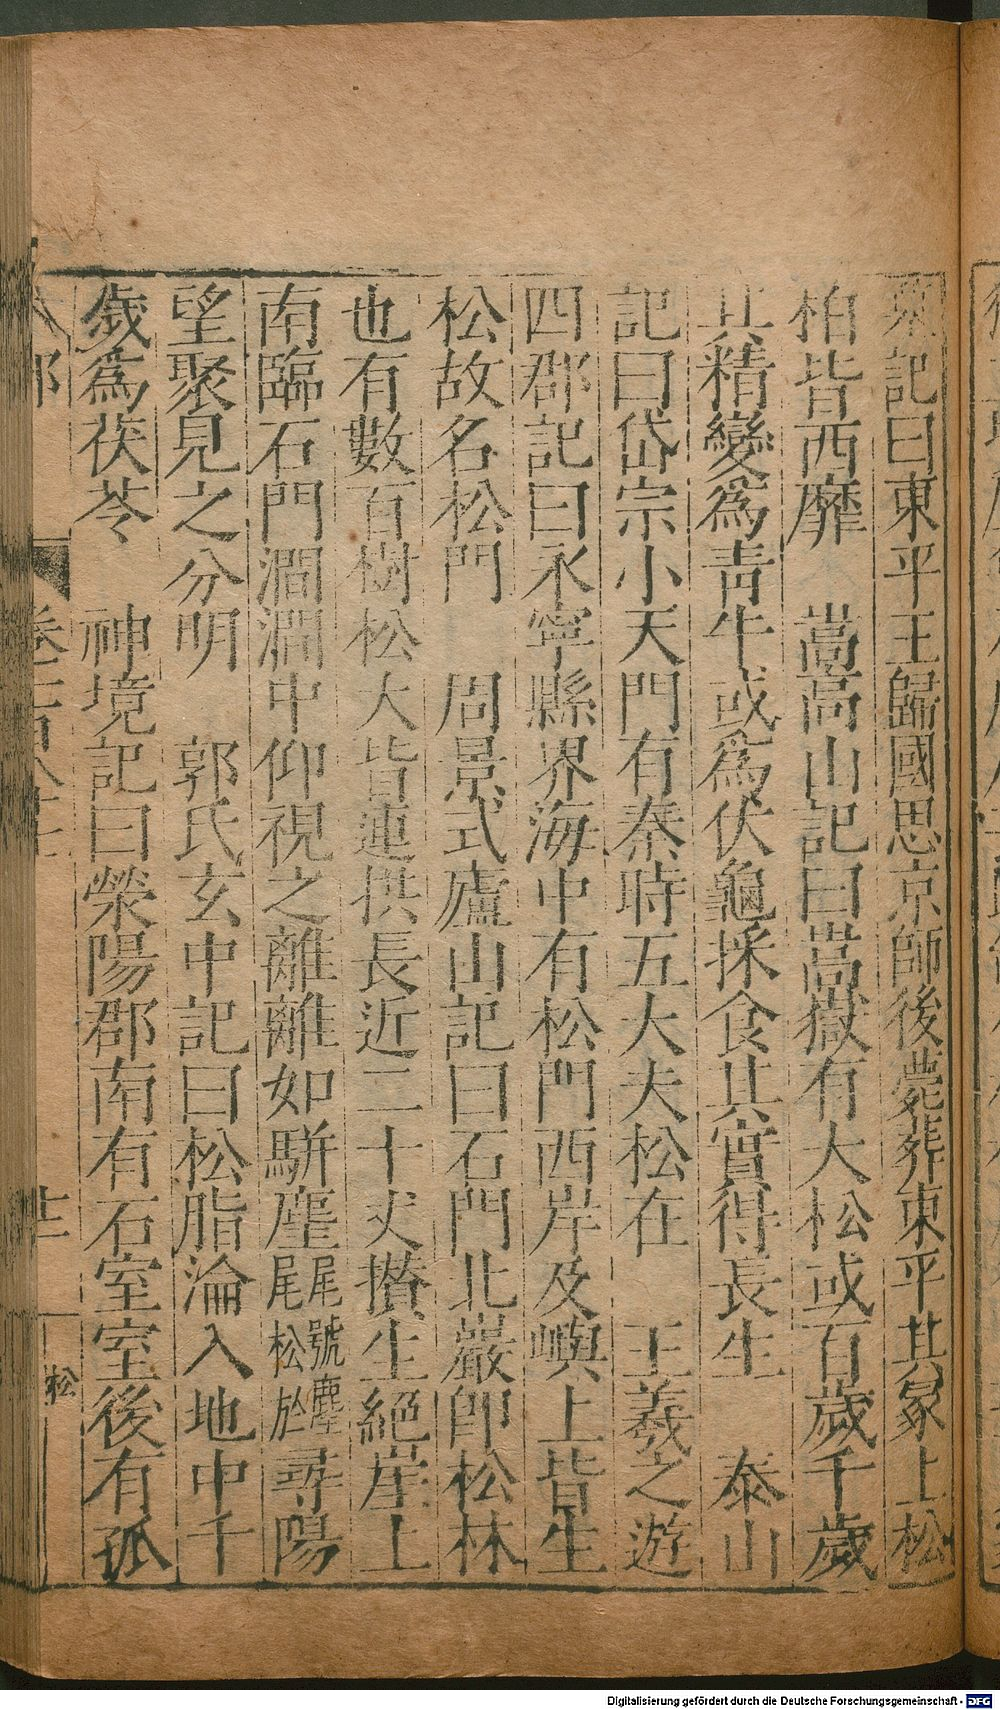 冢記曰東平王歸國思京師後薨葬東平其冢上松
柏皆西靡　嵩高山記曰嵩嶽有大松或百歲千歲
其精變爲靑牛或爲伏龜採食其實得長生　泰山
記曰岱宗小天門有秦時五大夫松在　王羲之遊
四郡記曰永寧縣界海中有松門西岸及嶼上皆生
松故名松門　周景式廬山記曰石門北巖卽松林
也有數百樹松大皆連拱長近二十丈攢生絕崖上
南臨石門澗澗中仰視之離離如騈塵尾號塵尾松於尋陽
望聚見之分明　郭氏玄中記曰松脂淪入地中千
歲爲茯苓　神境記曰滎陽郡南有石室室後有孤
木部
廿二
松
Digitalisierung gefördert durch die Deutsche Forschungsgemeinschaft - DFG